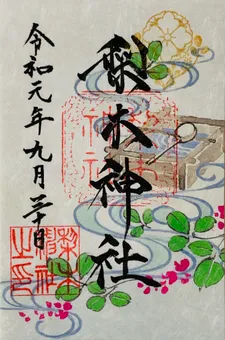 梨木神社
令和元年九月二十日
梨木
神社
之印